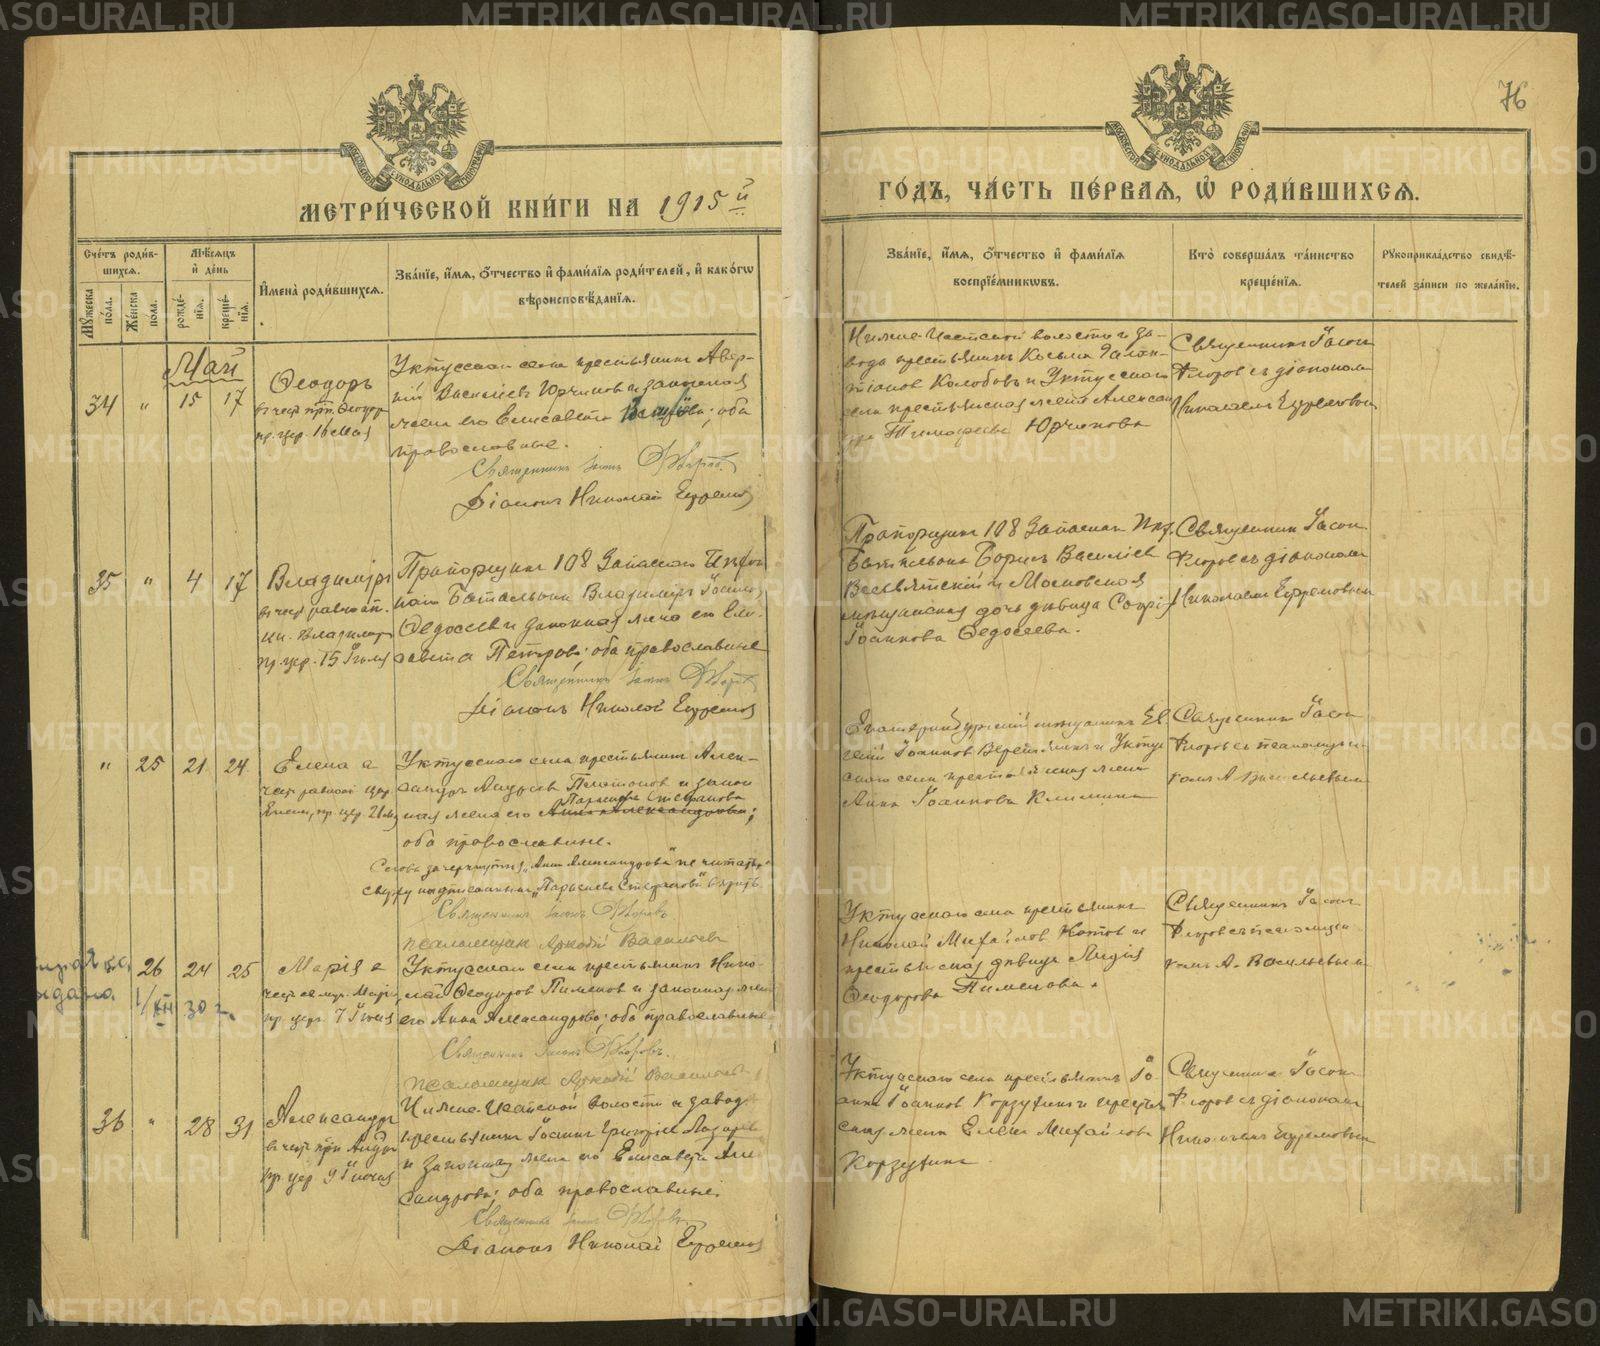 76
МЕТРИ́ЧЕСКОЙ КНИ́ГИ НА 1915й
ГО́ДЪ, ЧА́СТЬ ПЕ́РВАЯ, Ѿ РОДИ́ВШИХСЯ.
Сче́тъ роди́в-
шихся.
Мѣ́сяцъ
и҆ де́нь
Му́жеска
по́ла.
Же́нска
по́ла.
рожде́-
нїя.
креще́-
нїя.
И҆мена̀ роди́вшихся.
Зва́нїе, и҆́мя, ѻ҆́тчество и҆ фами́лїя роди́телей, и҆ како́гѡ
вѣроисповѣ́данїя.
Зва́нїе, и҆́мя, ѻ҆́тчество и҆ фами́лїя
воспрїе́мникѡвъ.
Кто̀ соверша́лъ та́инство
креще́нїя.
Рꙋкоприкла́дство свидѣ́-
телей за́писи по жела́нїю.
Май
34 " 15 17
Ѳеодоръ
пр. цер. 16 мая
Уктусскаго села крестьянинъ Авер-
кій Василіевъ Юрчиковъ и законная
жена его Елисавета оба
православные.
Священникъ Іасонъ Флоровъ
Діаконъ Николай Ефремов
Нижне-Исетской волости и за-
вода крестьянинъ Косьма Галак-
тіоновъ Колобовъ и Уктусскаго
села крестьянская жена Алексан
Тимофеева Юрчикова
Священникъ Іасонъ
Флоровъ съ діакономъ
Николаемъ Ефремовым
35 " 4 17
Владиміръ
въ честь равноап.
кн. Владимира
пр. цер. 15 Іюля
Прапорщикъ 108 Запаснаго Пѣхот
наго Батальона Владиміръ Іоанновъ
Ѳедосеевъ и законная жена его Ели-
савета Петрова; оба православные
Священникъ Іасонъ Флоров
Діаконъ Николай Ефремов
Прапорщикъ 108 Запаснаго Пѣх.
Батальона Борисъ Василіевъ
Всесвятскій и Московская
мѣщанская дочь дѣвица Софія
Іоаннова Ѳедосеева.
Священникъ Іасон
Флоровъ съ діакономъ
Николаемъ Ефремовым
" 25 21 24
Елена
въ честь равноап. цар.
Елены, пр. цер. 21 Мая
Уктусскаго села крестьянинъ Алек-
сандръ Андреевъ Платоновъ и закон
Параскева Стефанова
ная жена его Анна Александрова;
оба православные.
Слова зачеркнутыя „Анна Александрова" не читать,
сверху надписанныя „Параскева Стефанова" вѣрить.
Священникъ Іасонъ Флоровъ
псаломщик Аркадій Васильевъ
Екатеринбургскій мѣщанинъ Ев
геній Іоанновъ и Укту
сскаго села крестьянская жена
Анна Іоаннова Климина
Священникъ Іасон
Флоровъ съ псаломщи-
комъ А. Васильевым
26 24 25
1/XII 30 г.
Марія
пр. цер. 7 Іюня
Уктусскаго села крестьянинъ Нико-
лай Ѳеодоровъ Пименовъ и законная жена
его Анна Александрова; оба православные
Священникъ Іасонъ Флоровъ.
псаломщик Аркадій Васильев
Уктусскаго села крестьянинъ
Николай Михайловъ Котовъ и
крестьянская дѣвица Лидія
Ѳеодорова Пименова.
Священникъ Іасон
Флоровъ съ псаломщи-
комъ А. Васильевым
36 " 28 31
Александръ
пр. цер 9 Іюня
Нижне-Исетской волости и завода
крестьянинъ Іоаннъ Григорьев Лазарев
и законная жена его Елисавета Алек
сандрова; оба православные.
Священникъ Іасонъ Флоровъ
Діаконъ Николай Ефремов
Уктусскаго села крестьянинъ Іо-
аннъ Іоанновъ Корзухинъ и крестьян
ская жена Елена Михайлова
Корзухина
Священник Іасон
Флоровъ съ діакономъ
Николаемъ Ефремовым